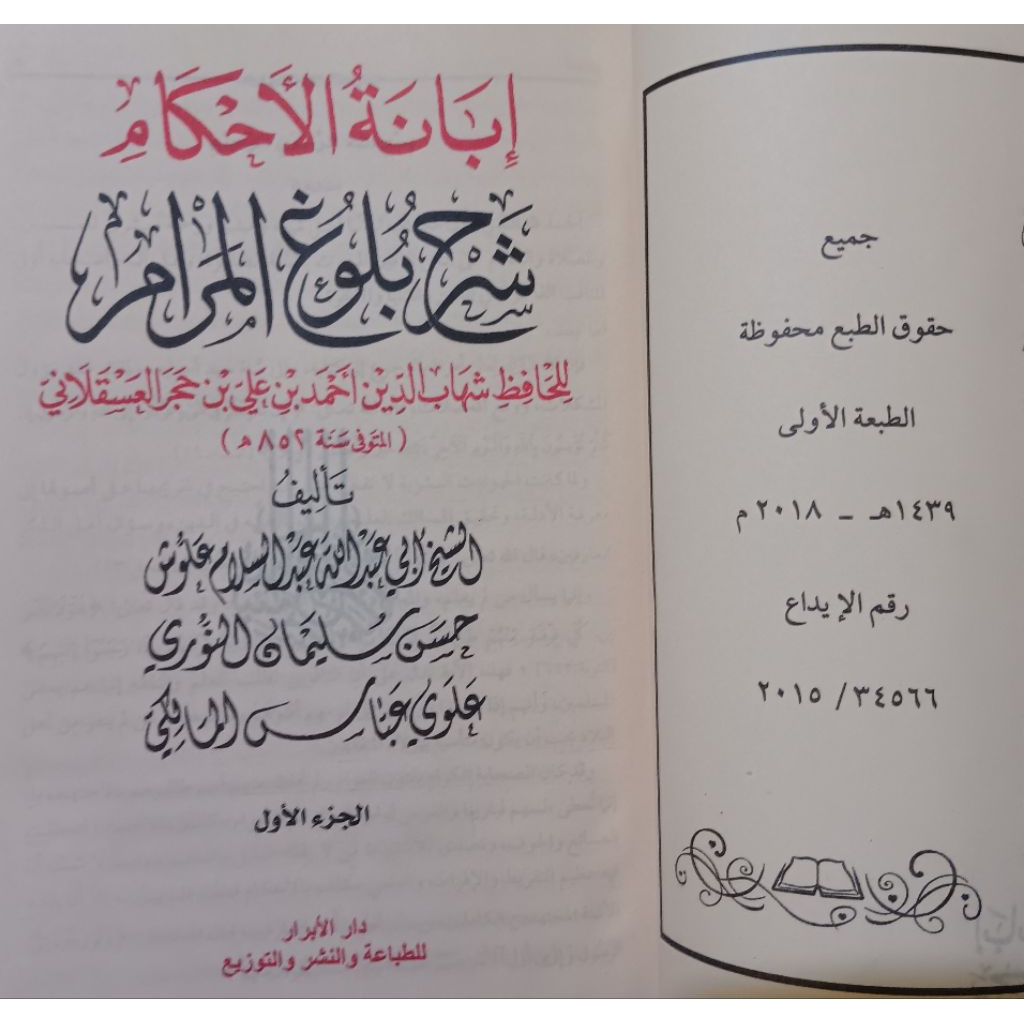 إِبَانَةُ الأَحْكَامِ
شَرْحُ بُلُوغِ المَرَامِ
لِلْحَافِظِ شِهَابِ الدِّيْنِ أَحْمَدَ بْنِ عَلِيِّ بْنِ حَجَرٍ العَسْقَلَانِيِّ
(المتوفى سَنَة ٨٥٢ هـ)
تَأْلِيفُ
الشيخ أبي عَبْدِ الله عَبْدِ السلام عَلّوش
حَسَن سُليمان النُّوري
عَلَوي عَبّاس المالِكي
الجزء الأول
دار الأبرار
للطباعة والنشر والتوزيع
جميع
حقوق الطبع محفوظة
الطبعة الأولى
١٤٣٩هـ – ٢٠١٨ م
رقم الإيداع
٣٤٥٦٦ / ٢٠١٥